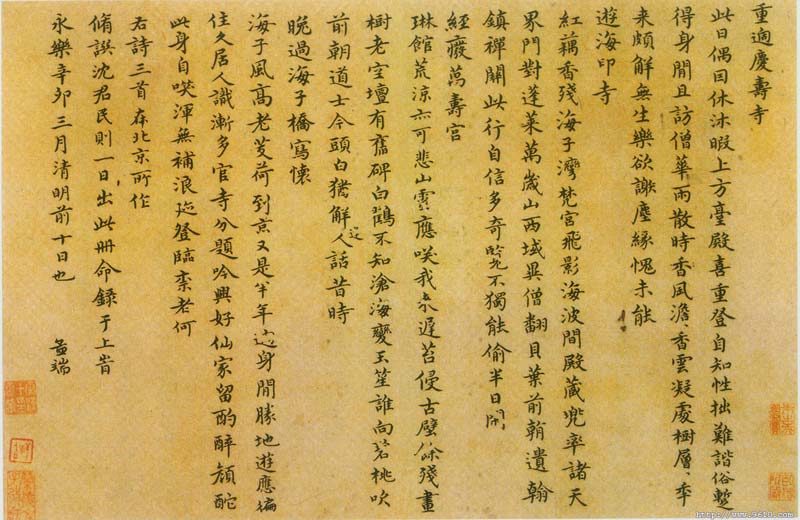 重過慶壽寺
此日偶因休沐暇上方臺殿喜重登自知性拙難諧俗暫
得身閒且訪僧華雨散時香風澹香雲凝處樹層季
来頗解無生樂欲謝塵緣愧未能
遊海印寺
紅藕香殘海子灣梵宮飛影海波間殿藏兜率諸天
界門對蓬萊萬歲山西域異僧翻貝葉前朝遺翰
鎮禪關此行自信多奇不獨能偷半日閒
經廢萬壽宮
琳館荒涼亦可悲山雲應咲我来遲苔侵古壁餘殘畫
樹老空壇有舊碑白鶴不知滄海變玉笙誰向碧桃吹
前朝道士今頭白猶解人話昔時
晚過海子橋寫懷
海子風高老芰荷到京又是半年身閒勝地遊應徧
住久居人識漸多官寺分題吟興好仙家留酌醉顏酡
此身自咲渾無補浪跡登臨柰老何
右詩三首在北京所作
脩譔沈君民則一日出此冊命錄于上岢
永樂辛卯三月清明前十日也
孟端
http://www.9610.com